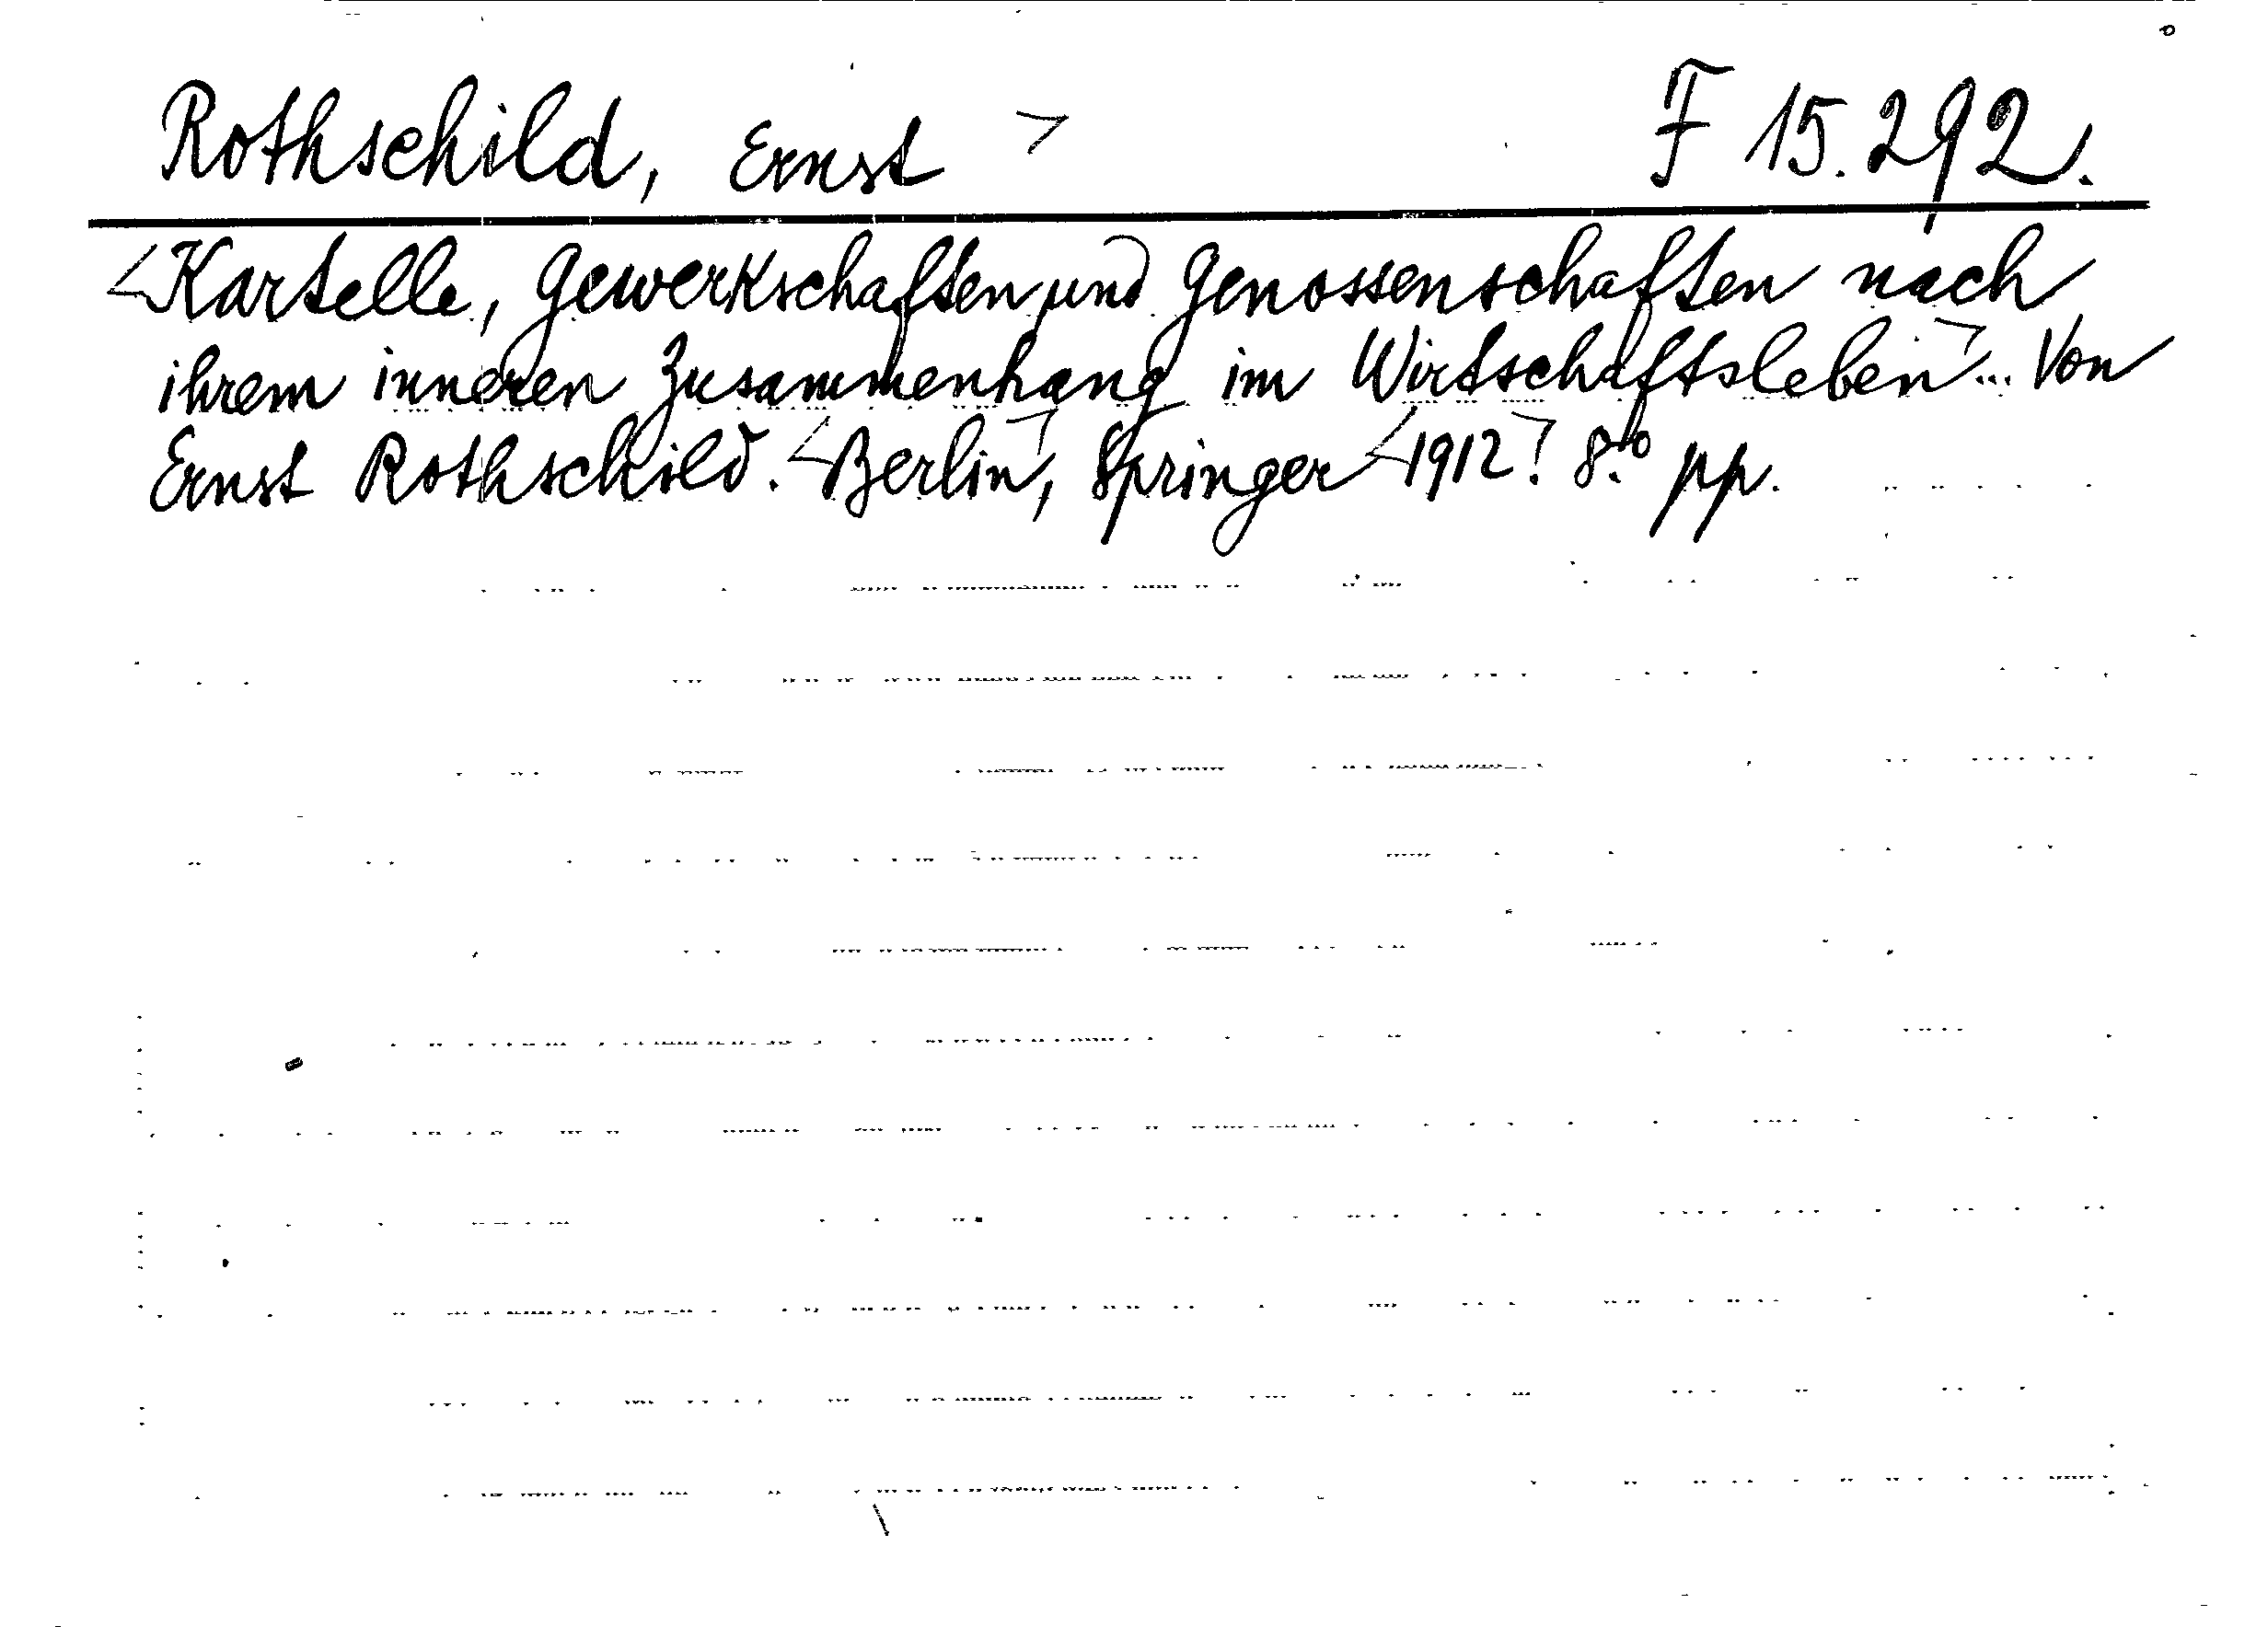 Rothschild, Ernst F 15.292.
Kartelle, Gewerkschaften und Genossenschaften nach
ihrem inneren Zusammenhang im Wirtschaftsleben... Von
Ernst Rothschild. Berlin, Springer 1912. 8.º pp.